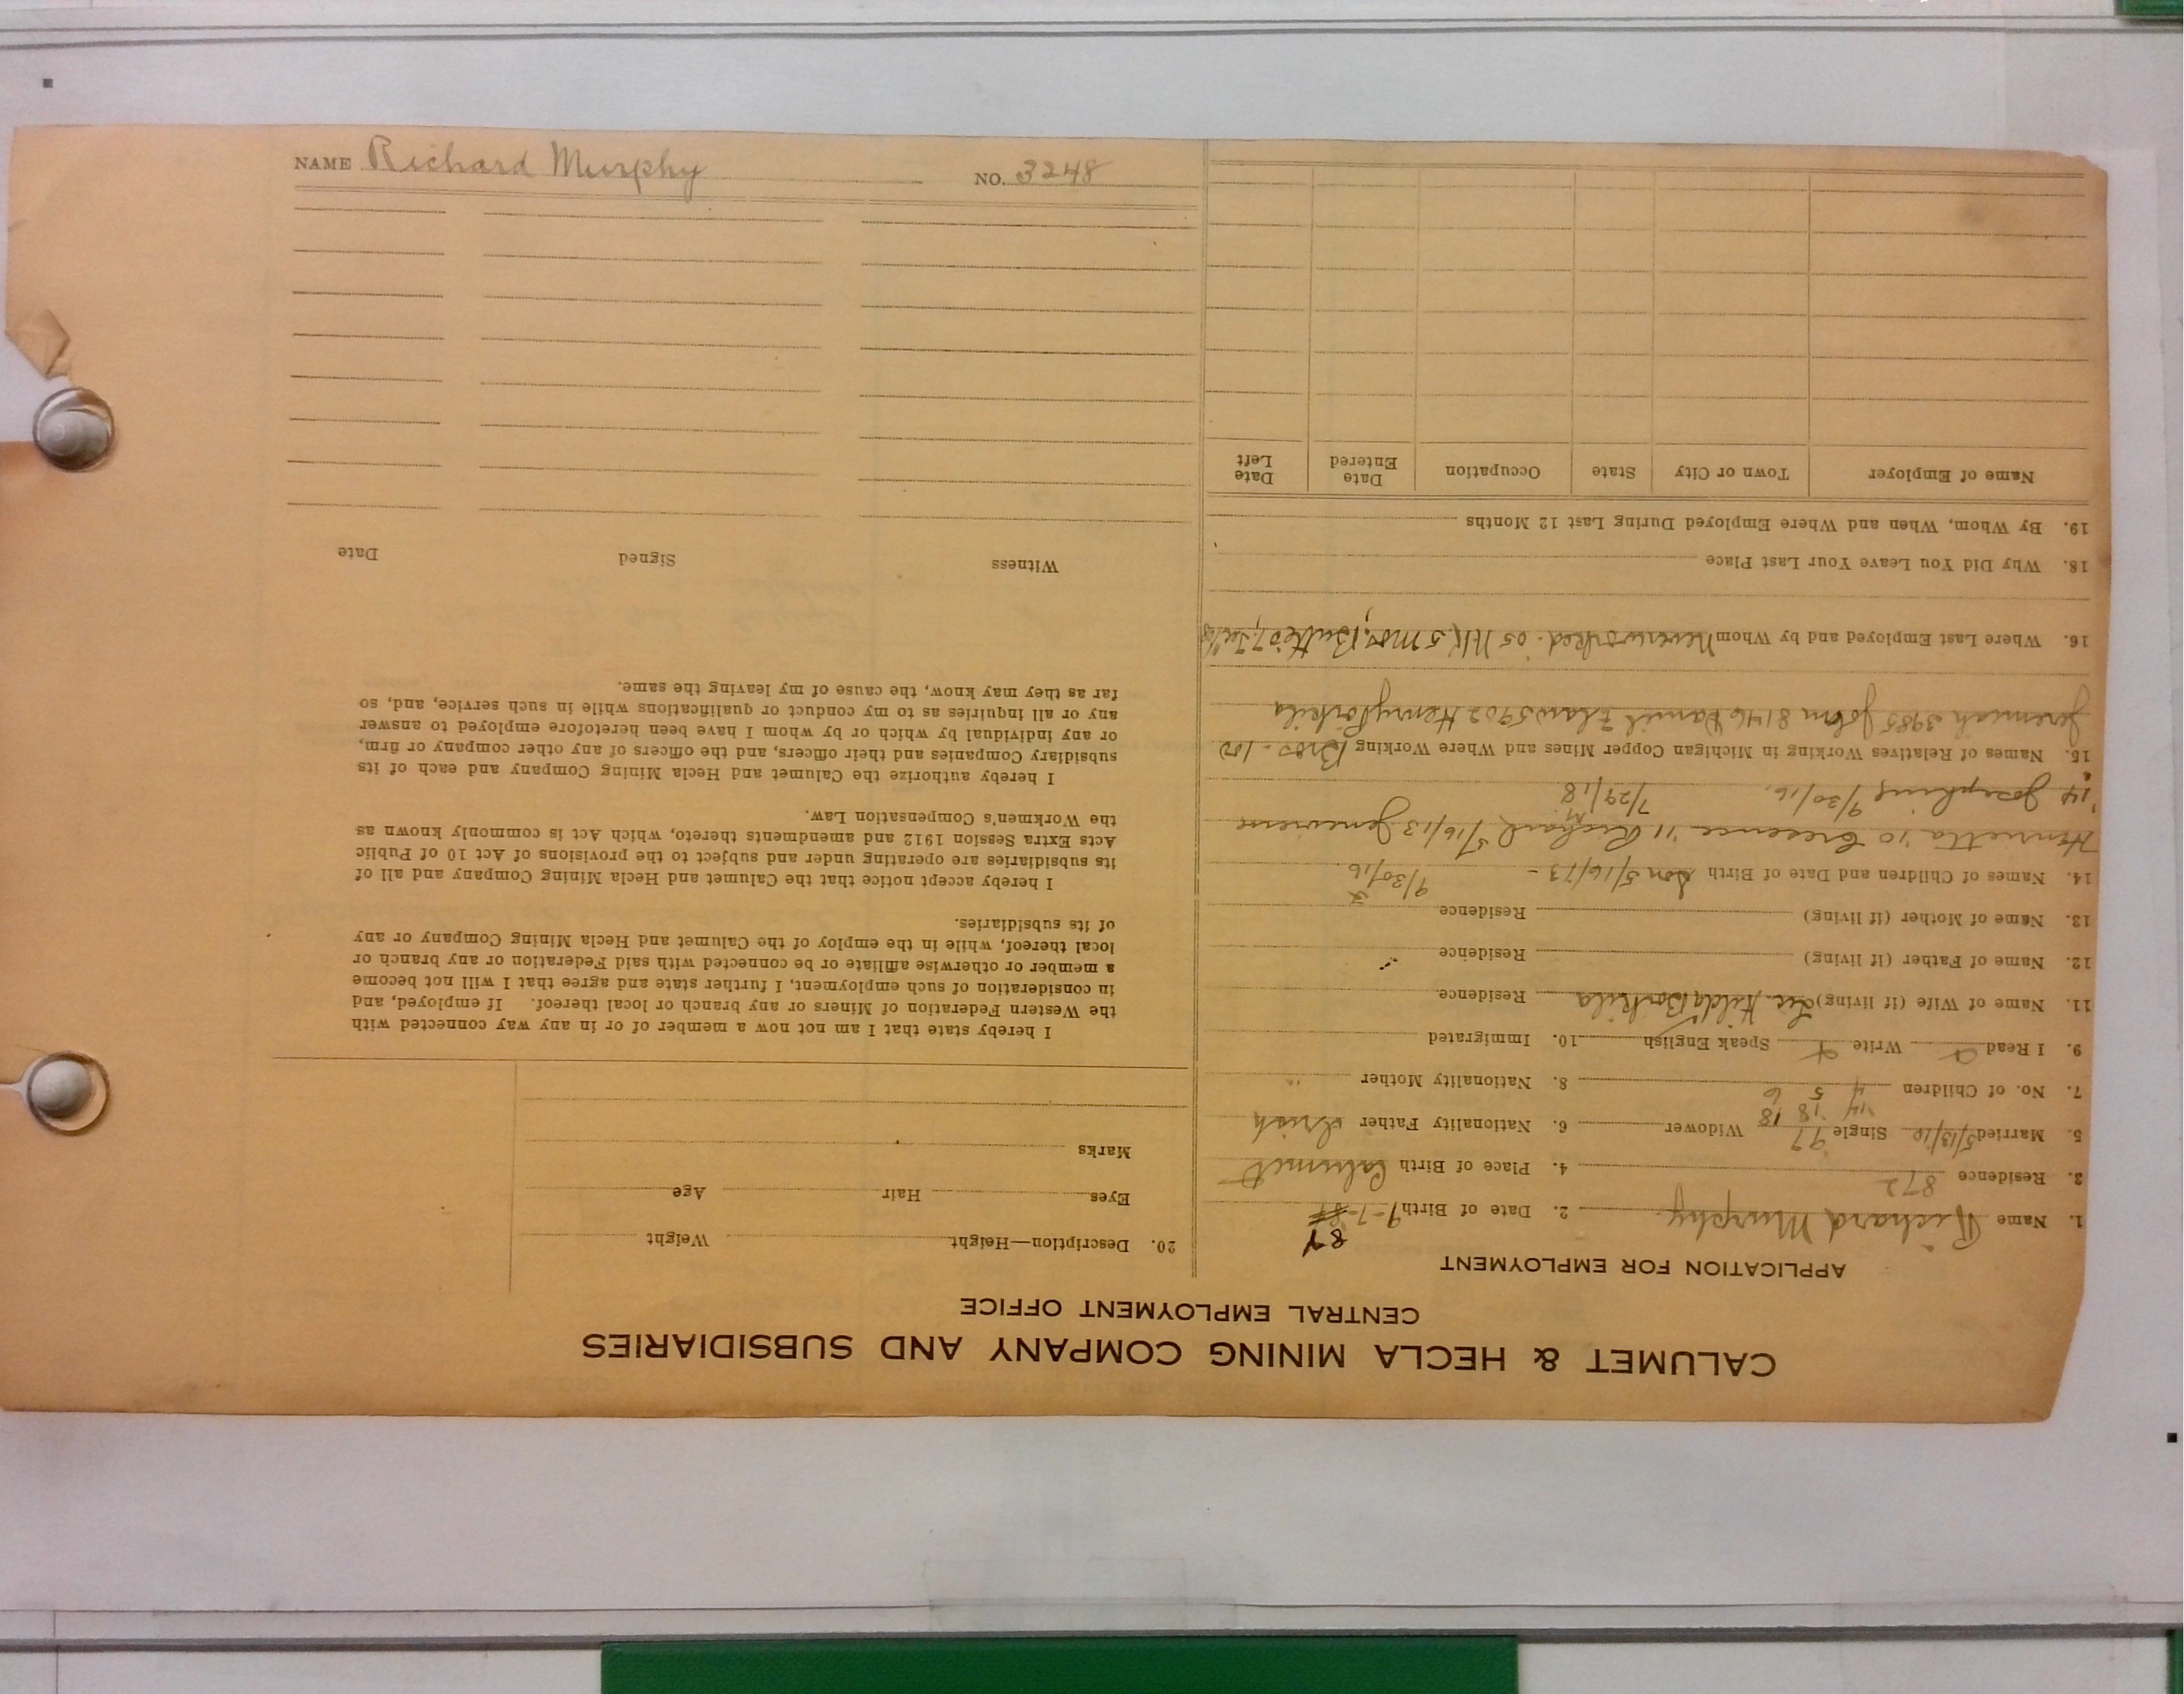 CALUMET & HECLA MINING COMPANY AND SUBSIDIARIES
CENTRAL EMPLOYMENT OFFICE
APPLICATION FOR EMPLOYMENT
1. Name Richard Murphy 2. Date of Birth 9-7- 87
3. Residence 872 4. Place of Birth Calumet
5. Married 5/13/10 Single Widower 6. Nationality Father Irish
'14 '18 18
7. No. of Children 4 5 6 8. Nationality Mother "
9. I Read Write Speak English 10. Immigrated
11. Name of Wife (if living) Hilda Residence
12. Name of Father (if living) Residence
13. Name of Mother (if living) Residence
14. Names of Children and Date of Birth Son 5/16/13 - 9/30/16.
Henrietta '10 '11 Richard 5/16/13
'14 Josephine 9/30/16. 7/29/18
15. Names of Relatives Working in Michigan Copper Mines and Where Working Bros -
Jeremiah 3985 John 8146 Daniel 5902 Henry
16. Where Last Employed and by Whom Never worked. 05 5 mos, Butte
18. Why Did You Leave Your Last Place
19. By Whom, When and Where Employed During Last 12 Months
Name of Employer Town or City State Occupation Date Entered Date Left
20. Description—Height Weight
Eyes Hair Age
Marks
I hereby state that I am not now a member of or in any way connected with
the Western Federation of Miners or any branch or local thereof. If employed, and
in consideration of such employment, I further state and agree that I will not become
a member or otherwise affiliate or be connected with said Federation or any branch or
local thereof, while in the employ of the Calumet and Hecla Mining Company or any
of its subsidiaries.
I hereby accept notice that the Calumet and Hecla Mining Company and all of
its subsidiaries are operating under and subject to the provisions of Act 10 of Public
Acts Extra Session 1912 and amendments thereto, which Act is commonly known as
the Workmen's Compensation Law.
I hereby authorize the Calumet and Hecla Mining Company and each of its
subsidiary Companies and their officers, and the officers of any other company or firm,
or any individual by which or by whom I have been heretofore employed to answer
any or all inquiries as to my conduct or qualifications while in such service, and, so
far as they may know, the cause of my leaving the same.
Witness Signed Date
NAME Richard Murphy NO. 3248